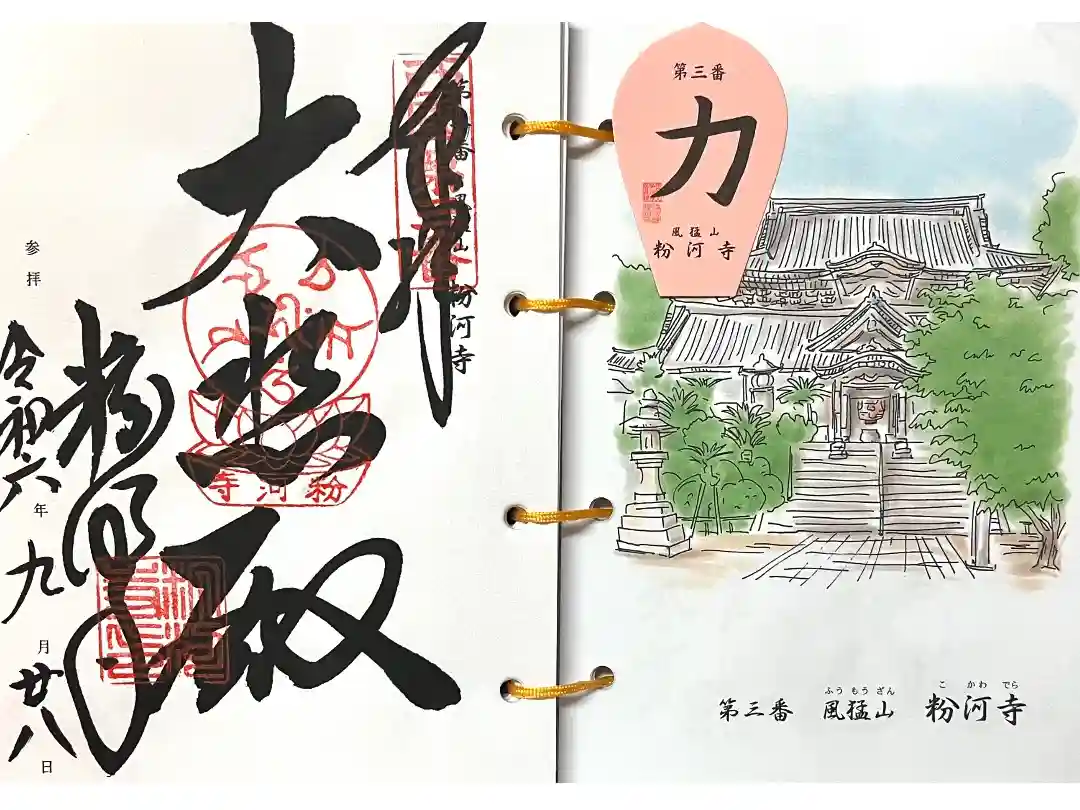 奉拝
第三番 風猛山 粉河寺
大悲殿
粉河寺
粉河寺
参拝 令和六年九月廿八日
第三番
力
風猛山
粉河寺
ふうもうざん こかわでら
第三番 風猛山 粉河寺